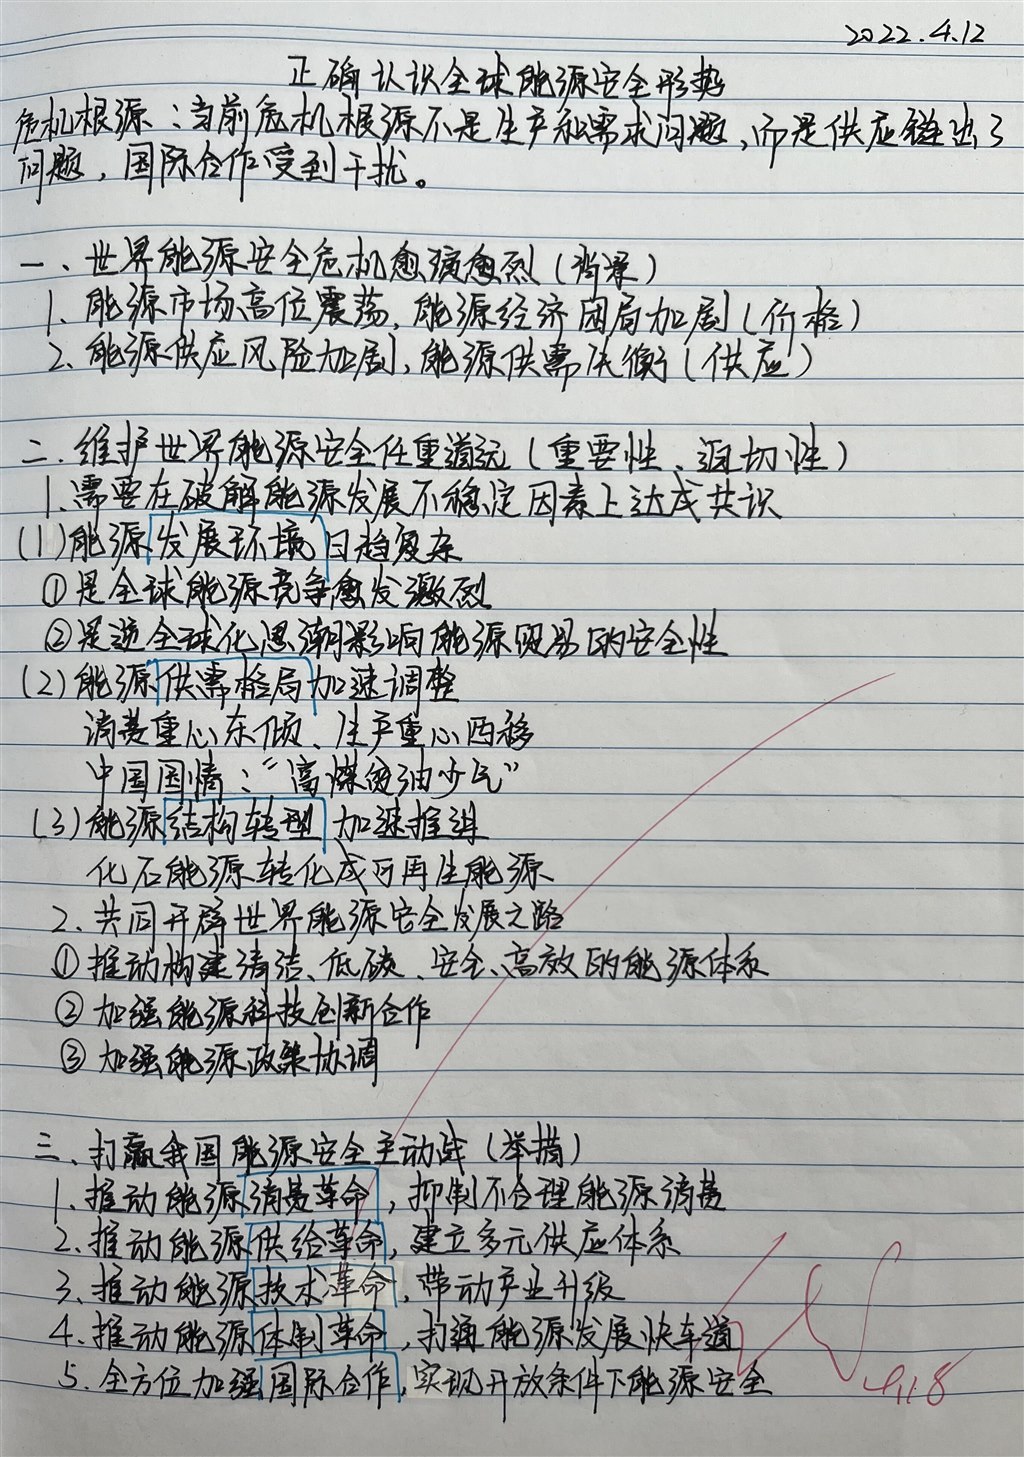 2022.4.12
正确认识全球能源安全形势
危机根源：当前危机根源不是生产和需求问题，而是供应链出了
问题，国际合作受到干扰。
一、世界能源安全危机愈演愈烈（背景）
1、能源市场高位震荡，能源经济困局加剧（价格）
2、能源供应风险加剧，能源供需失衡（供应）
二、维护世界能源安全任重道远（重要性、迫切性）
1、需要在破解能源发展不稳定因素上达成共识
(1)能源发展环境日趋复杂
①是全球能源竞争愈发激烈
②是逆全球化思潮影响能源贸易的安全性
(2)能源供需格局加速调整
消费重心东倾、生产重心西移
中国国情：“富煤贫油少气”
(3)能源结构转型加速推进
化石能源转化成可再生能源
2、共同开辟世界能源安全发展之路
①推动构建清洁、低碳、安全、高效的能源体系
②加强能源科技创新合作
③加强能源政策协调
三、打赢我国能源安全主动战（举措）
1、推动能源消费革命，抑制不合理能源消费
2、推动能源供给革命，建立多元供应体系
3、推动能源技术革命，带动产业升级
4、推动能源体制革命，打通能源发展快车道
5、全方位加强国际合作，实现开放条件下能源安全
4.18